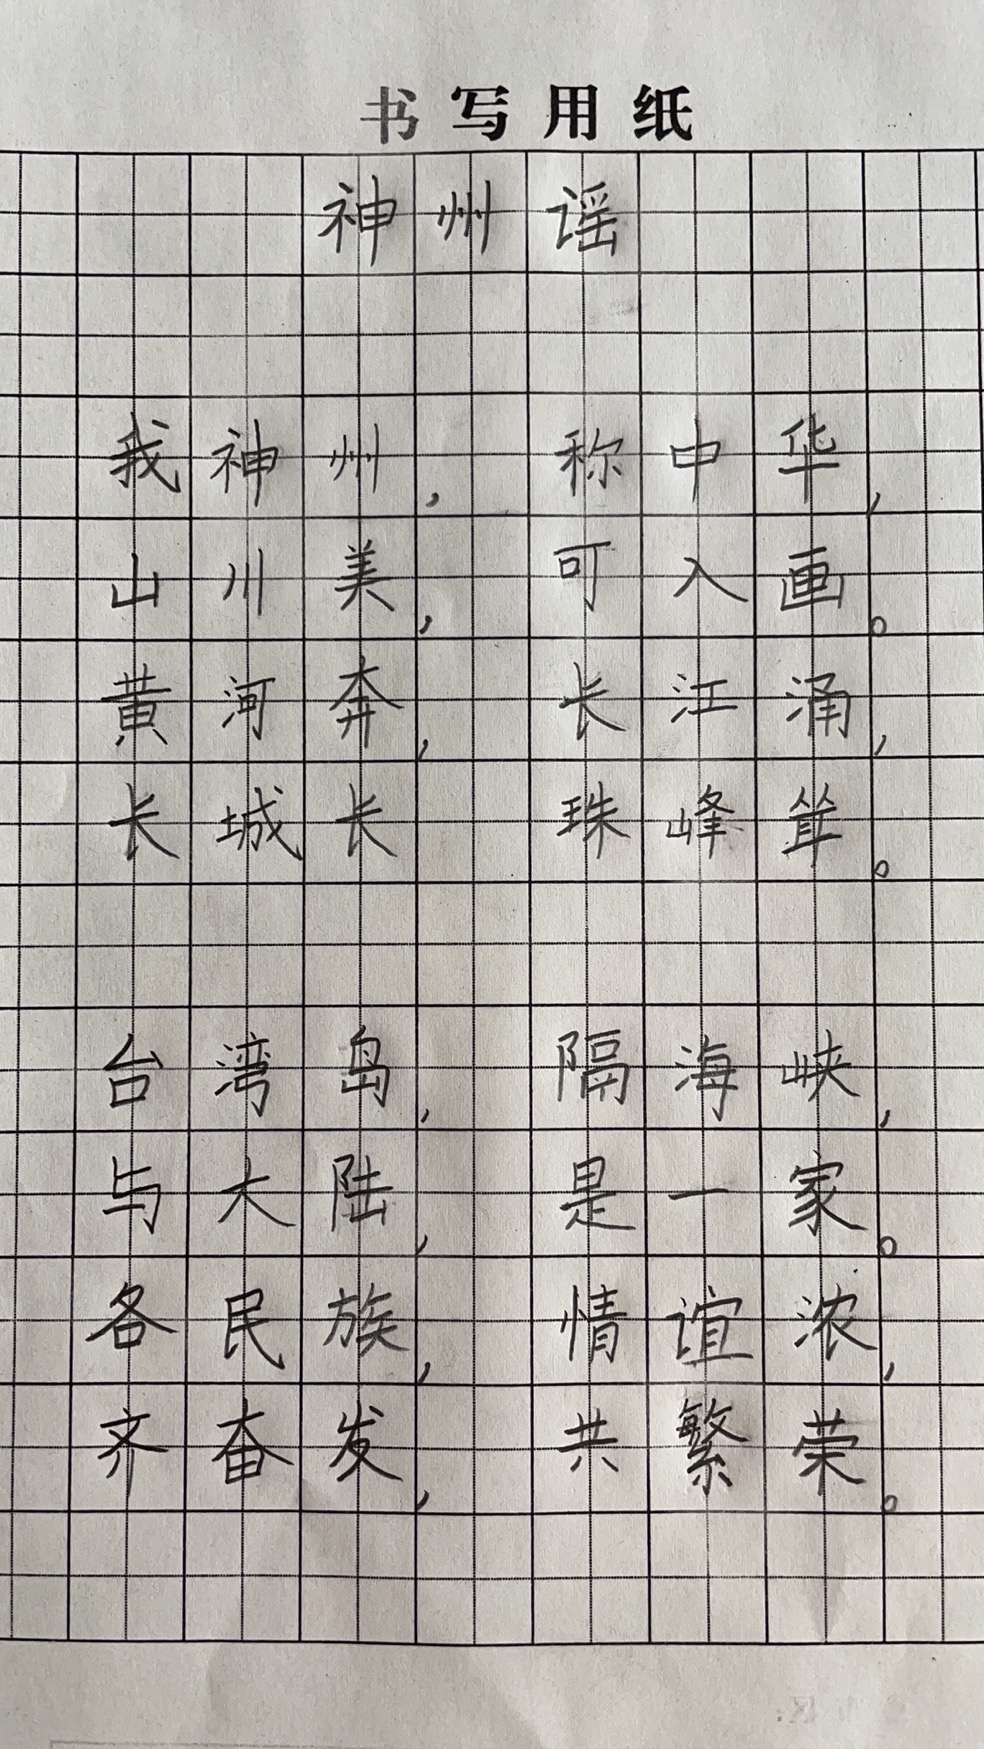 书写用纸
神州谣
我神州，称中华，
山川美，可入画。
黄河奔，长江涌，
长城长 珠峰耸。
台湾岛，隔海峡，
与大陆，是一家。
各民族，情谊浓，
齐奋发，共繁荣。